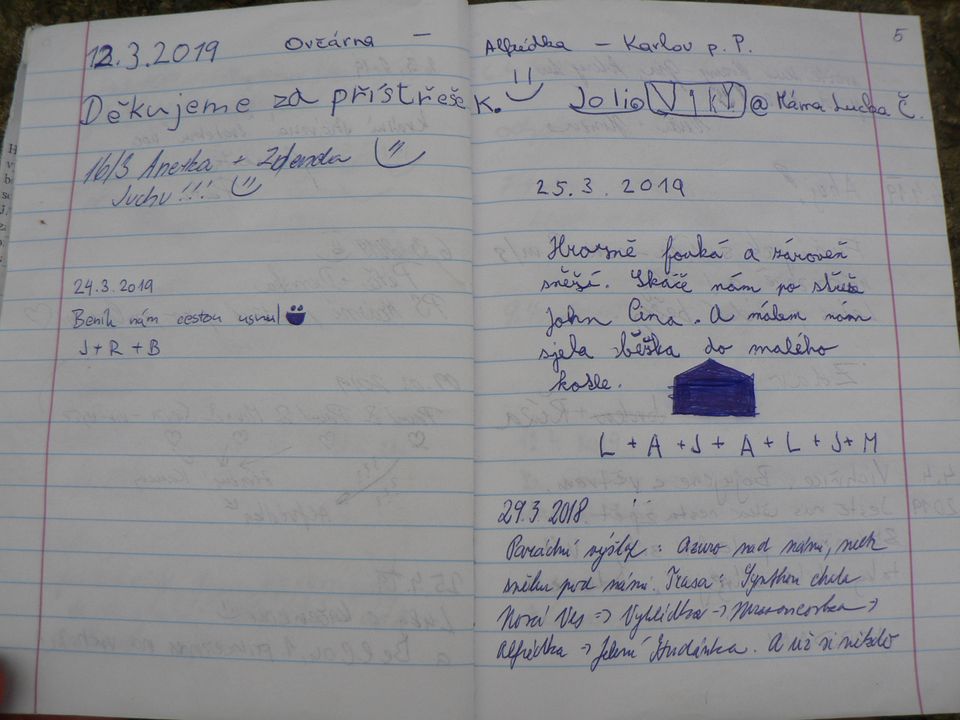 12.3.2019 Ovčárna — Alfrédka — Karlov p. P.
Děkujeme za přístřešek. Jolio Viky @ Máma Lucka Č.
16/3 Anetka + Zdenda
Juchu!!!
24.3.2019
Beník nám cestou usnul
J + R + B
5
25.3.2019
Hrozně fouká a zároveň
sněží. Skáče nám po střeše
John Cina. A málem nám
sjela běžka do malého
kotle.
L + A + J + A + L + J + M
29.3.2018
Parádní výšlap: Azuro nad námi, metr
sněhu pod námi. Trasa: chata
Nová Ves => Vyhlídka ->
Alfrédka -> Jelení Studánka. A už si někdo